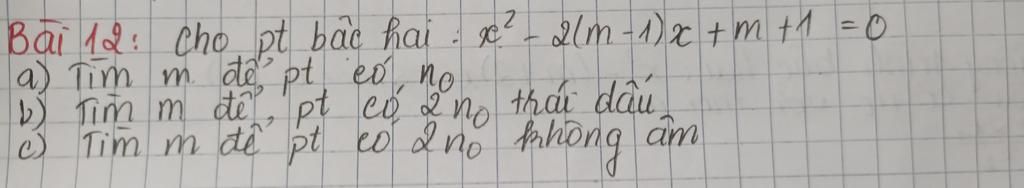 Bài 12: Cho pt bậc hai: x² - 2(m-1)x + m + 1 = 0
a) Tìm m để pt có n₀
b) Tìm m để pt có 2 n₀ trái dấu
c) Tìm m để pt có 2 n₀ không âm